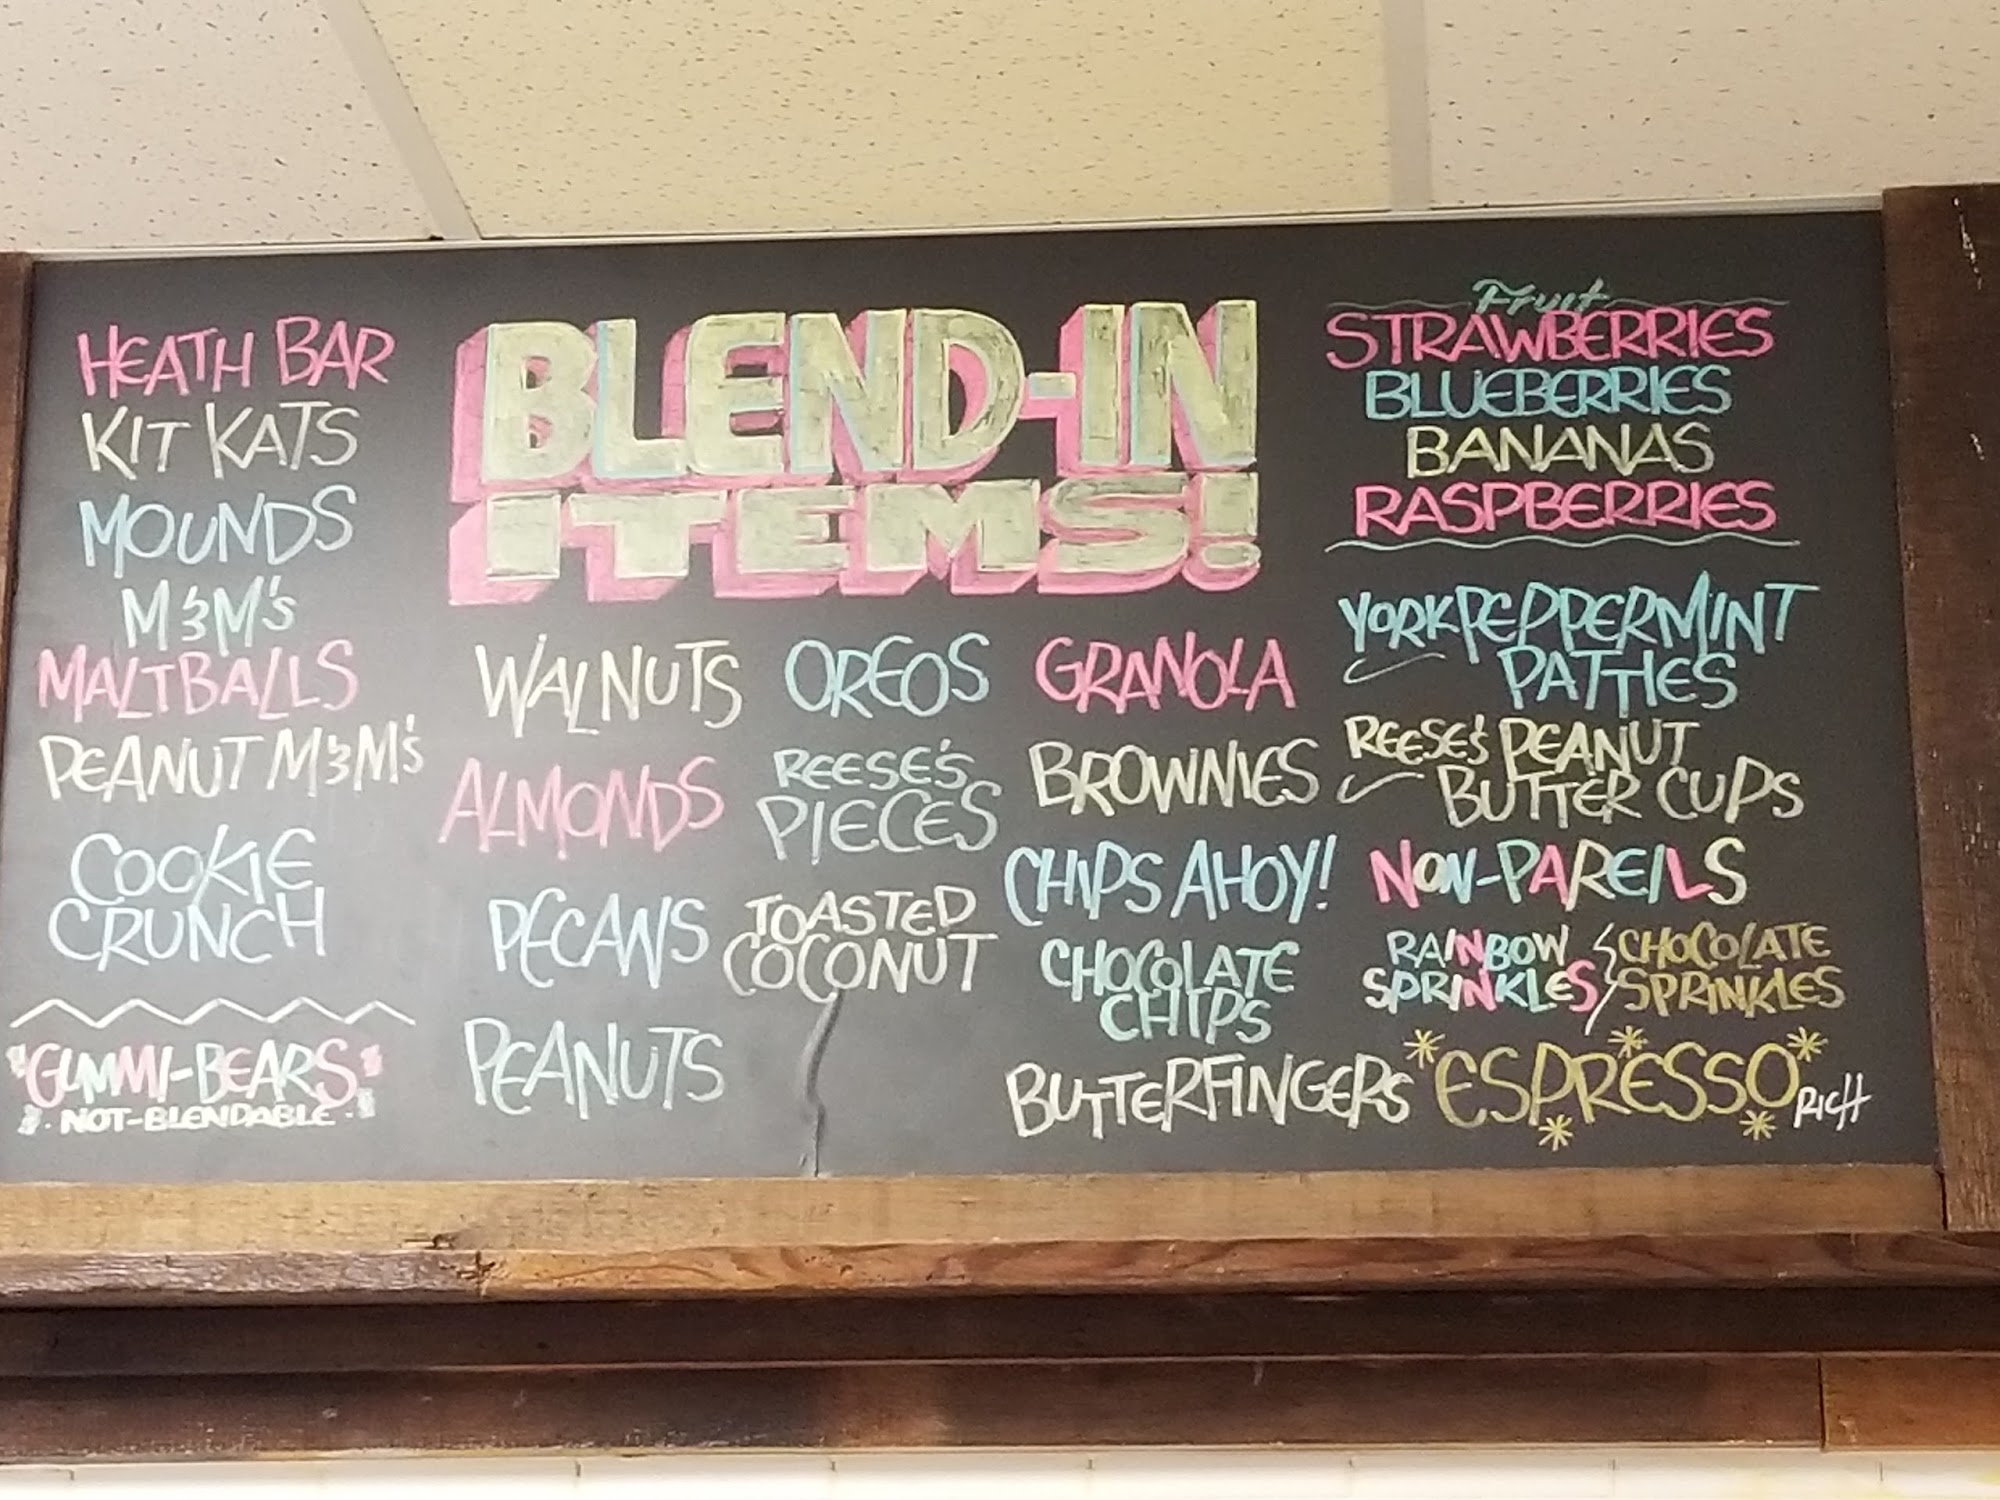 BLEND-IN
ITEMS!
HEATH BAR
KIT KATS
MOUNDS
M&M's
MALTBALLS
PEANUT M&M's
COOKIE
CRUNCH
"GUMMI-BEARS"
NOT-BLENDABLE
WALNUTS
ALMONDS
PECANS
PEANUTS
OREOS
REESE'S
PIECES
TOASTED
COCONUT
GRANOLA
BROWNIES
CHIPS AHOY!
CHOCOLATE
CHIPS
BUTTERFINGERS
Fruit
STRAWBERRIES
BLUEBERRIES
BANANAS
RASPBERRIES
YORK PEPPERMINT
PATTIES
REESE'S PEANUT
BUTTER CUPS
NON-PAREILS
RAINBOW
SPRINKLES
CHOCOLATE
SPRINKLES
ESPRESSO
RICH